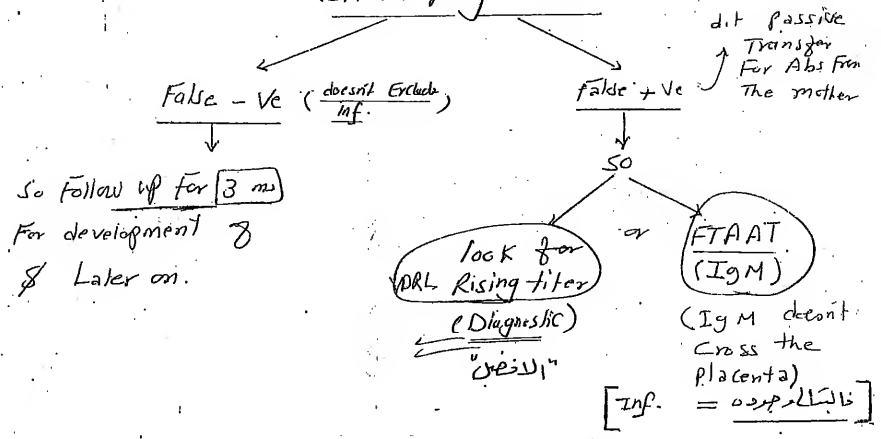 d.t Passive
Transfer
For Abs From
The mother
False - Ve (doesn't Exclude
Inf.)
false + Ve
So Follow up for 3 ms
For development of
$ Later on.
SO
look for
VDRL Rising titer
(Diagnostic)
"الافضل"
or
FTAAT
(IgM)
(IgM doesn't
Cross the
Placenta)
[Inf. = فالبتالي وجوده]